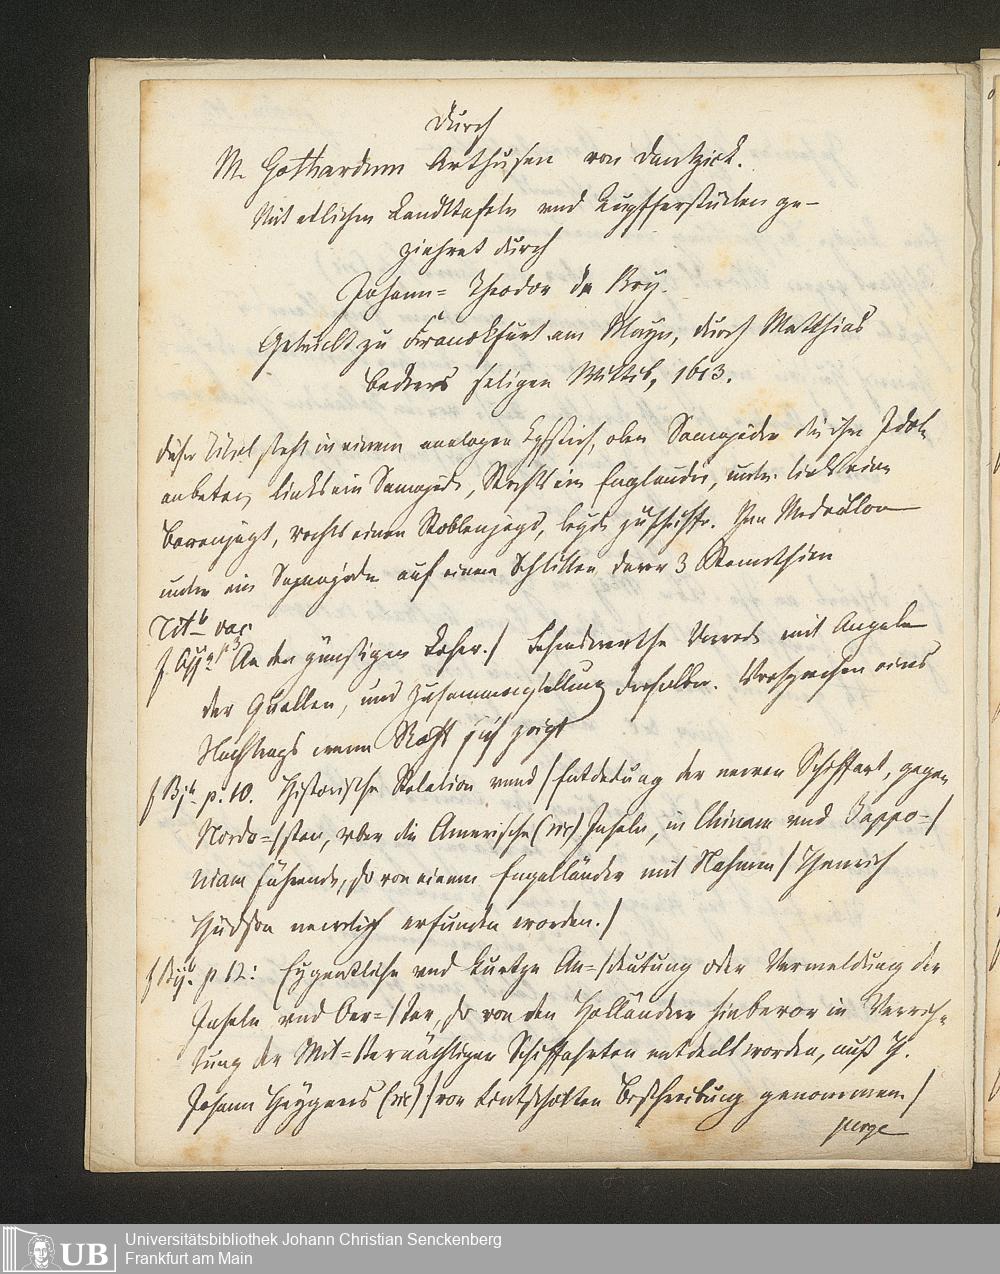 Durch
M. Gothardum Arthusen von Dantzick.
Mit etlichen Landtafeln und Kupfferstücken ge-
ziehret durch
Johann= Theodor de Bry.
Getruckt zu Franckfurt am Mayn, durch Matthias
Beckers seligen Wittib, 1613.
Dieser Titel steht in einem analogen Kpfstich, oben Samojeden die ihre Idole
anbeten, links ein Samojede, Rechts ein Engländer, unten links eine
Bärenjagt, rechts einen Robbenjagd, beyde zu Schiffe. Im Medaillon
unten ein Samojede auf einem Schlitten davor 3 Rennthiere
Tit b vac.
f An den günstigen Leser./ Lesenswerthe Vorrede mit Angabe
der Quellen, und Zusammenstellung derselben. Versprechen eines
Nachtrags wenn Stoff sich zeigt
f Bj b p. 10. Historische Relation vnnd / Entdeckung der newen Schiffart, gegen
Nordo=/sten, vber die Amerische (sic) Inseln, in Chinam vnd Jappo=/
niam führende, so von einem Engelländer mit Nahmen / Henrich
Hudson newlich erfunden worden./
f Bij b p 12: Eygentliche vnd kurtze An=/deutung oder Vermeldung der
Inseln vnd Oer=/ter, so von den Holländern hiebevor in Verrich-
tung der Mit=/ternächtigen Schiffahrten entdeckt worden, auß H.
Johann Heygens (sic) / von Lintschotten Beschreibung genommen /
perge
Universitätsbibliothek Johann Christian Senckenberg
UB Frankfurt am Main